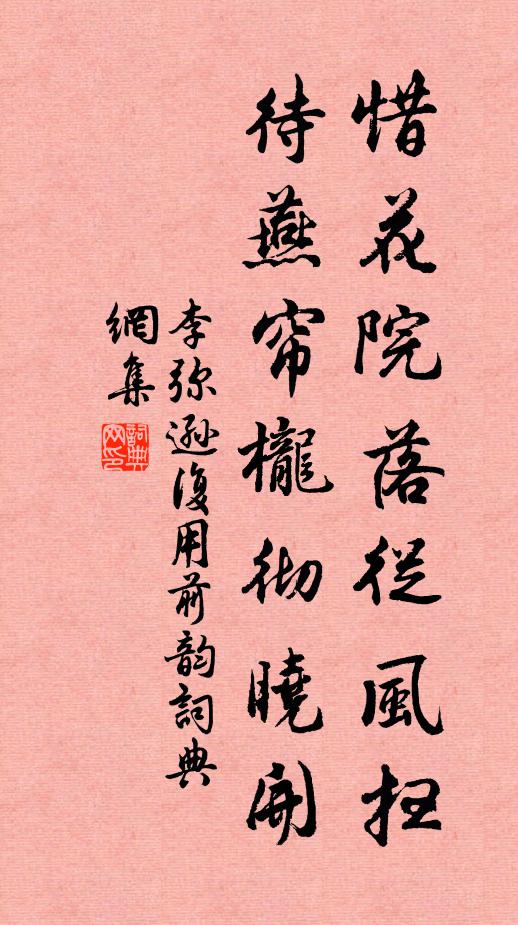 惜花院落從風扫
待燕帘櫳彻曉開
李弥遜復用前韵詞典
網集
詞典
网印